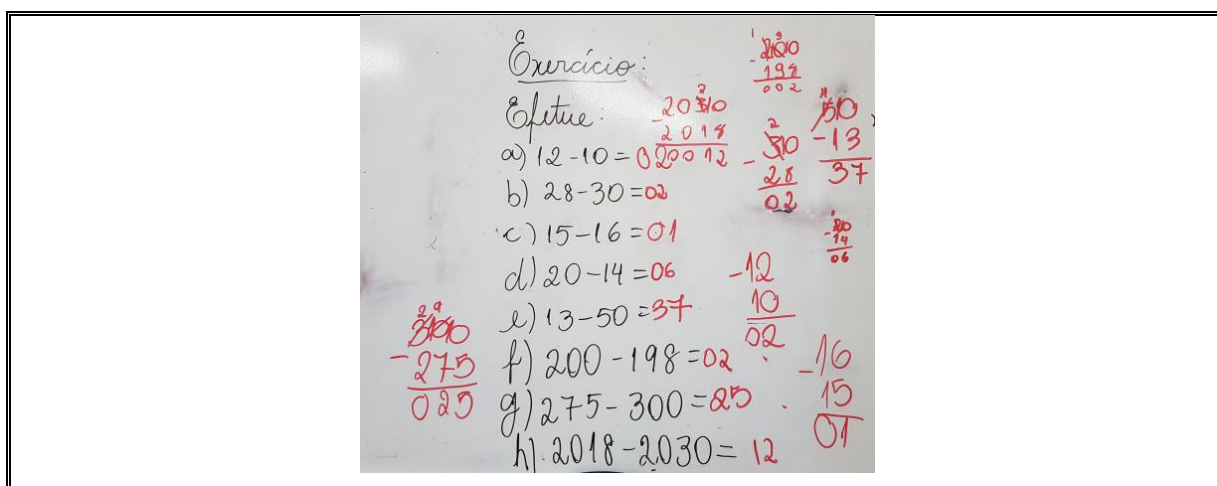 Exercício:
Efetue:
a) 12-10=02
b) 28-30=02
c) 15-16=01
d) 20-14=06
e) 13-50=37
f) 200-198=02
g) 275-300=25
h) 2018-2030=12
198
002
2
2018
0012
2
30
-28
02
50
-13
37
14
06
-12
10
02
-16
15
01
2 9
-275
025